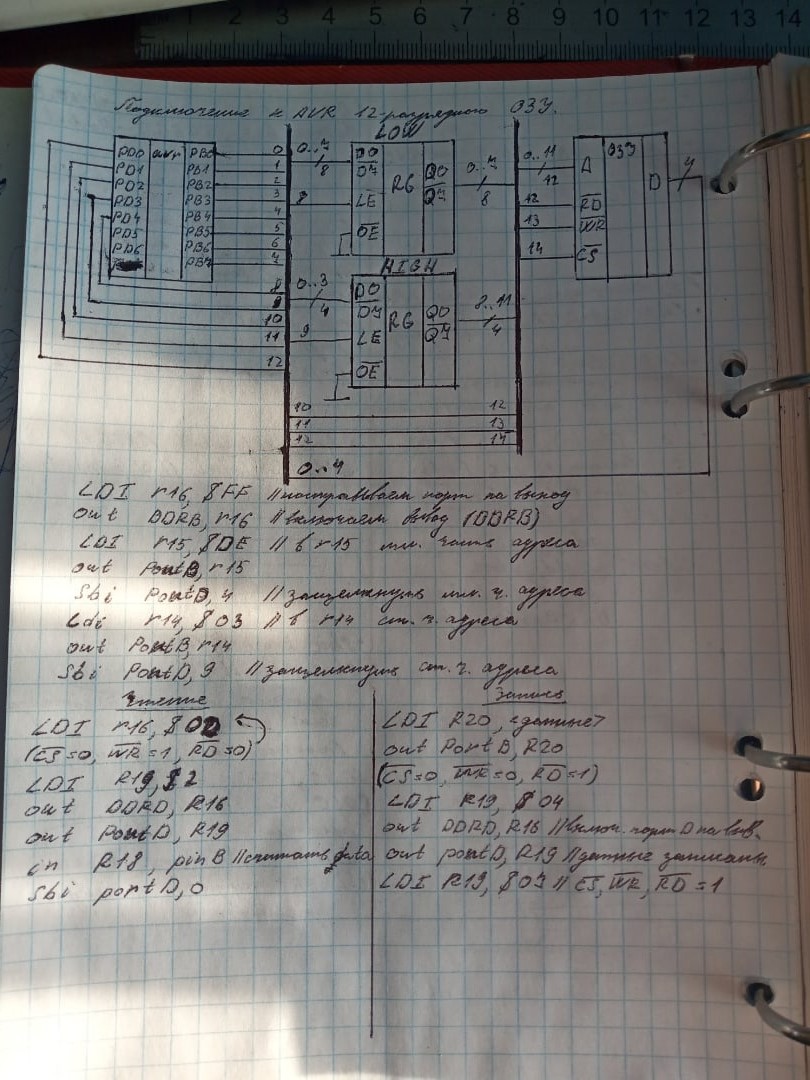 1 2 3 4 5 6 7 8 9 10 11 12 13 14
Подключение к AVR 12-разрядного ОЗУ.
LOW
PD0 avr PB0 0 0..7 D0 Q0 0..7 0..11 A ОЗУ D
PD1 PB1 1 8 D7 RG Q7 8 12
PD2 PB2 2
PD3 PB3 3 8 LE 12 RD
PD4 PB4 4 13 WR
PD5 PB5 5 OE
PD6 PB6 6 14 CS
PB7
HIGH
8 0..3 D0 Q0 8..11
9 4 D7 RG Q7 4
10
11 9 LE
12 OE
10 12
11 13
12 14
LDI r16, $FF //настраиваем порт на выход
out DDRB, r16 //включаем вывод (DDRB)
LDI r15, $DE // в r15 мл. часть адреса
out PortB, r15
Sbi PortD, 4 //защелкнуть мл. ч. адреса
Ldi r14, $03 // в r14 ст. ч. адреса
out PortB, r14
Sbi PortD, 9 //защелкнуть ст. ч. адреса
Чтение
LDI r16, $00
(CS=0, WR=1, RD=0)
LDI R19, $2
out DDRD, R16
out PortD, R19
in R18, pin B //считать data
Sbi portD, 0
Запись
LDI R20, <данные>
out PortB, R20
(CS=0, WR=0, RD=1)
LDI R19, $04
out DDRD, R16 //включ. порт D на выв.
out portD, R19 //данные записаны
LDI R19, $07 // CS, WR, RD = 1